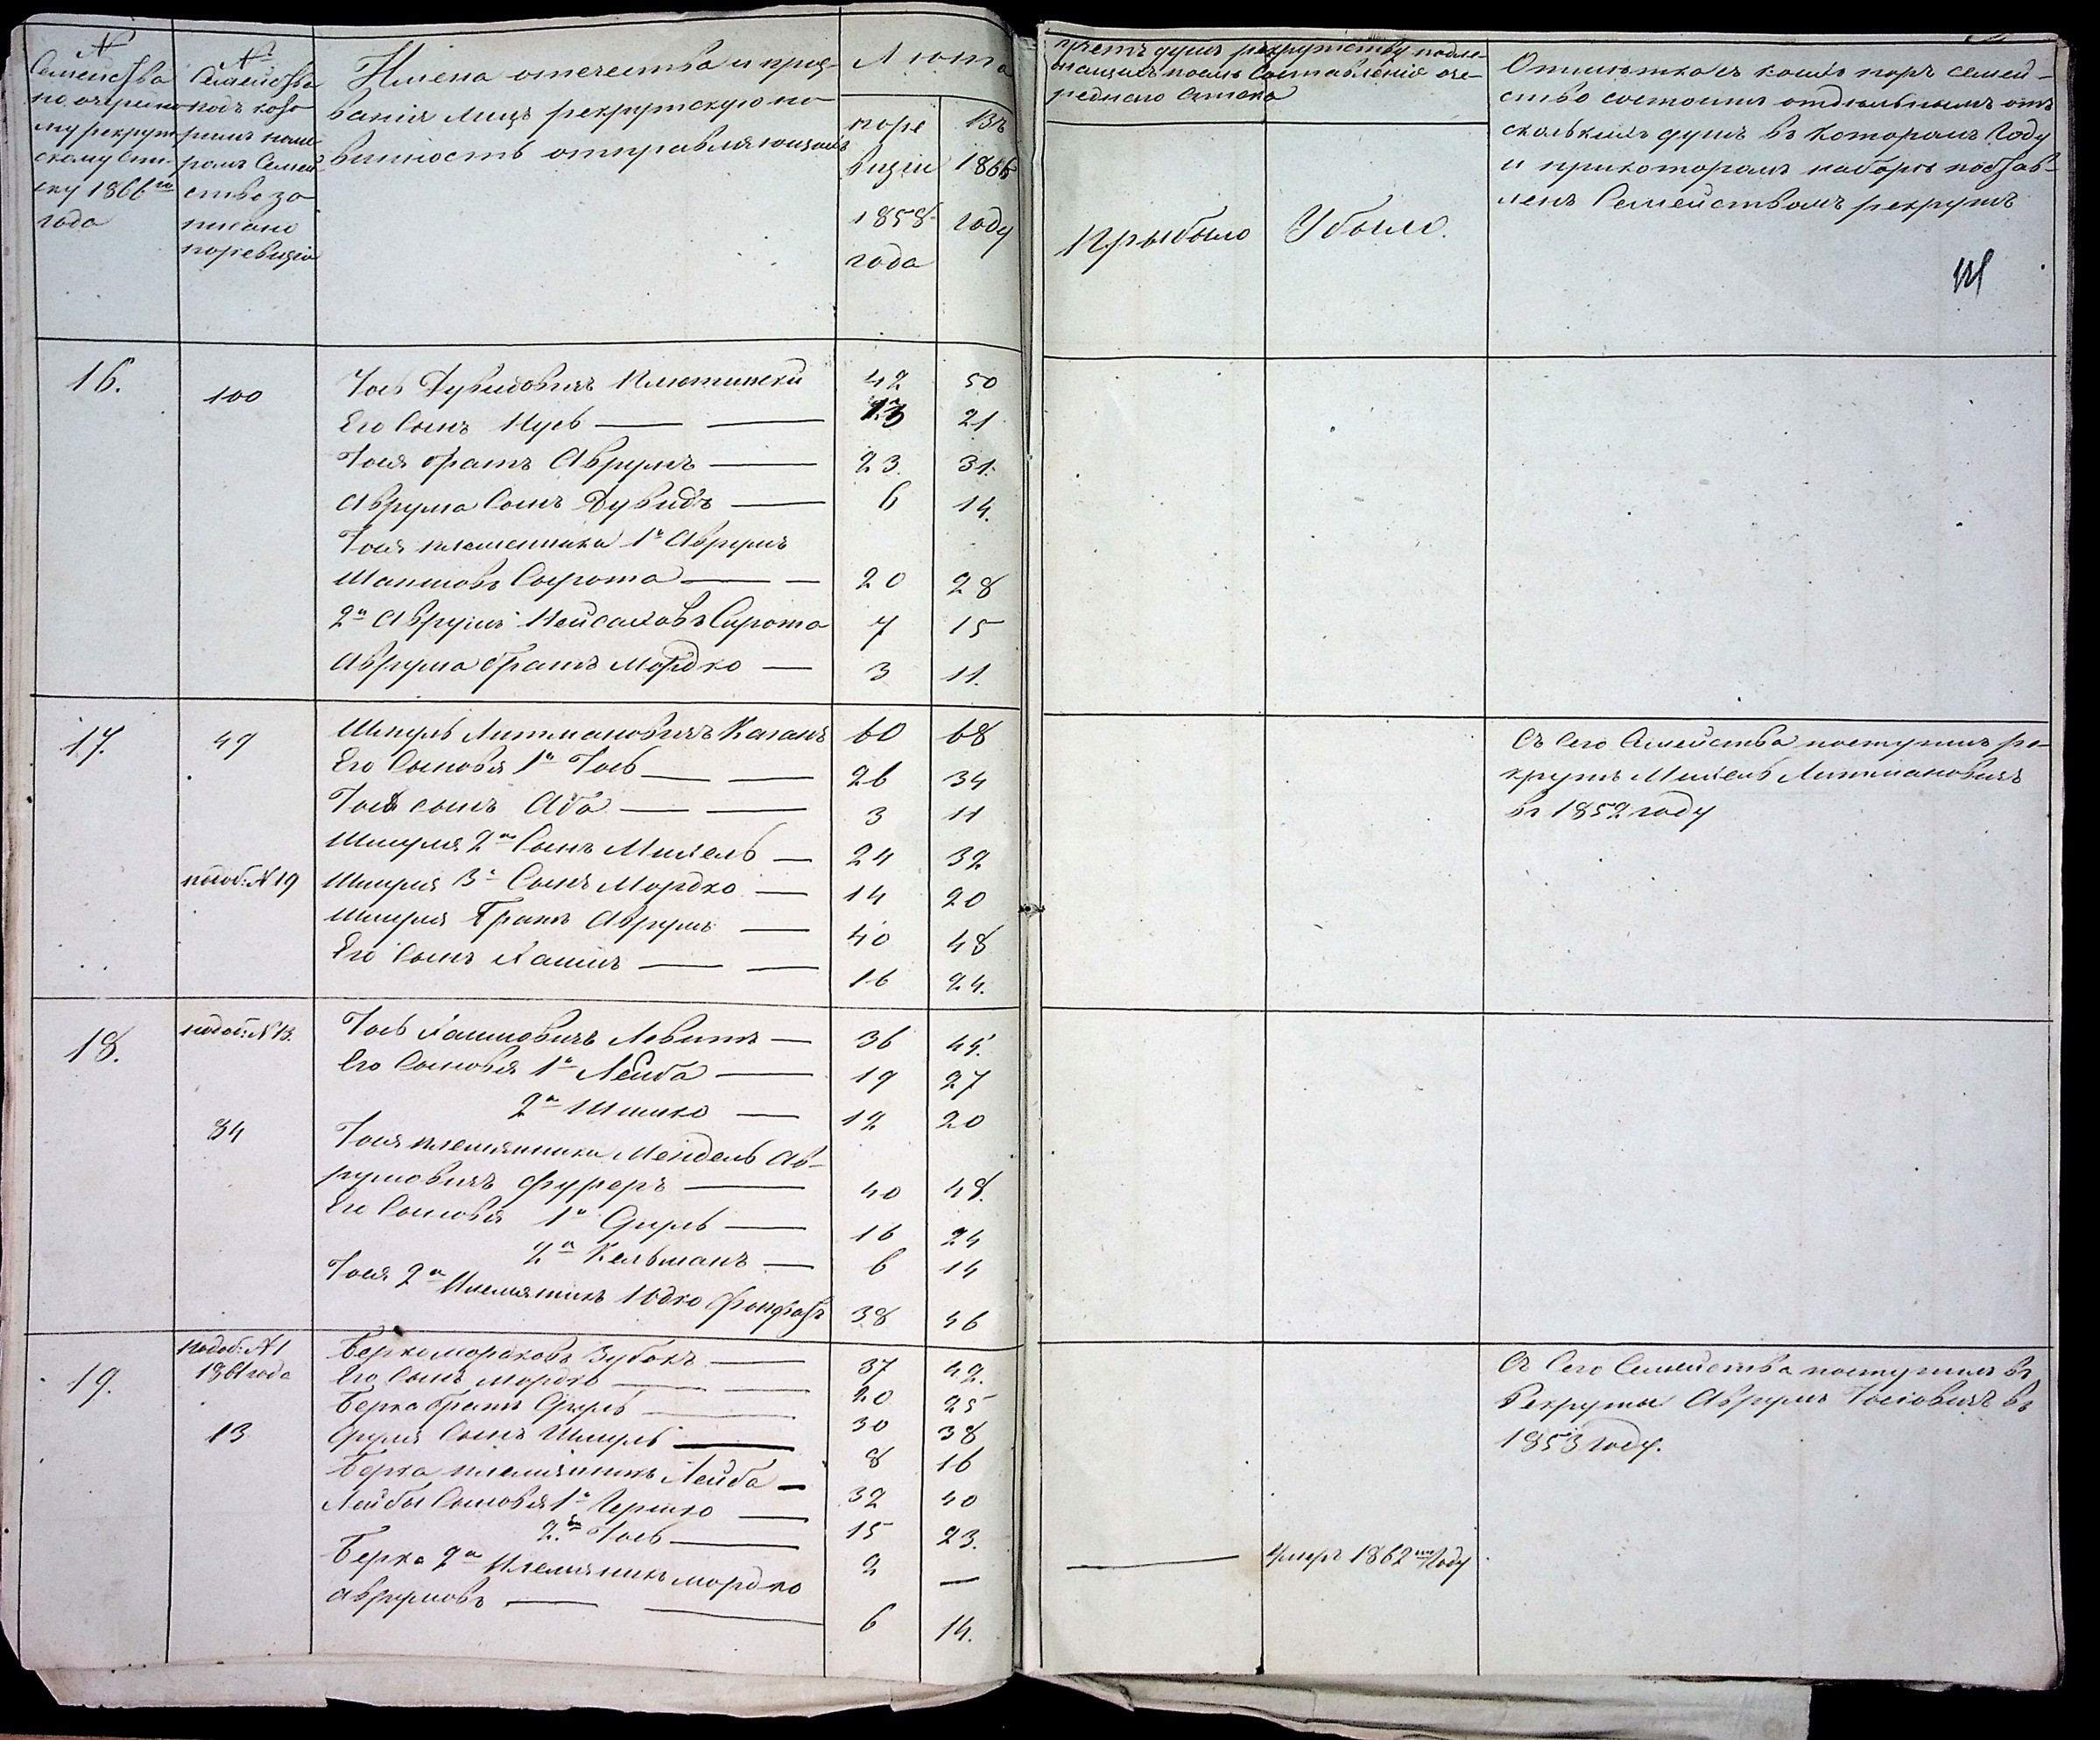 № Семейства по очередному рекрутскому списку 1866го года
№ Семейства подъ которымъ номеромъ Семейство записано по ревизіи
Имена отечества и прозванія лицъ рекрутскую повинность отправляющихъ
Лѣта
по ревизіи 1858 года
Въ 1866 году
счетъ душъ рекрутству подлежащихъ послѣ составленія очереднаго списка
Прыбыло
Убыло.
Отмѣтка съ какихъ поръ семейство состоитъ отдѣльнымъ отъ сколькихъ душъ въ которомъ Году и при которомъ наборѣ поставленъ Семействомъ рекрутъ
16. 100 Іось Дувидовичъ 42 50
Его Сынъ Нусь 13 21
Іося братъ Аврумъ 23. 31.
Аврума Сынъ Дувидъ 6 14.
Іося племенника 1й Аврумъ
Сырота 20 28
2й Аврумъ Пейсаховъ Сирота 7 15
Аврума братъ Мордко 3 11.
17. 49 Шмуль Литмановичъ Каганъ 60 68
Съ сего Семейства поступилъ рекрутъ Михель Литмановичъ въ 1852 году
Его Сыновья 1й Іось 26 34
Іося сынъ Аба 3 11
Шмуля 2й Сынъ Михель 24 32
№ 19 Шмуля 3й Сынъ Мордко 14 20
Шмуля Братъ Аврумъ 40 48
Его Сынъ Хаимъ 16 24.
18. подоб: № 13. Іось Хаимовичъ Левитъ 36 45.
Его Сыновья 1й Лейба 19 27
2й Ицко 12 20
34 Іося племянника Мендель Аврумовичъ Фуреръ 40 48.
Его Сыновья 1й Сруль 16 24
2й Кельманъ 6 14
Іося 2й Племяникъ Юдко 38 46
19. подоб: № 1 1861 года Берко Мордковъ Зубокъ 37 42.
Съ Сего Семейства поступилъ въ Рекруты Аврумъ Іосіовичъ въ 1853 Году.
Его Сынъ Мордко 20 25
Берка братъ Сруль 30 38
13 Сруля Сынъ Шмуль 8 16
Берка племянникъ Лейба 32 40
Лейбы Сыновья 1й Гершко 15 23.
2й Іось 2 — Умеръ 1862мъ Году
Берка 2й Племяникъ Мордко
Аврумовъ 6 14.